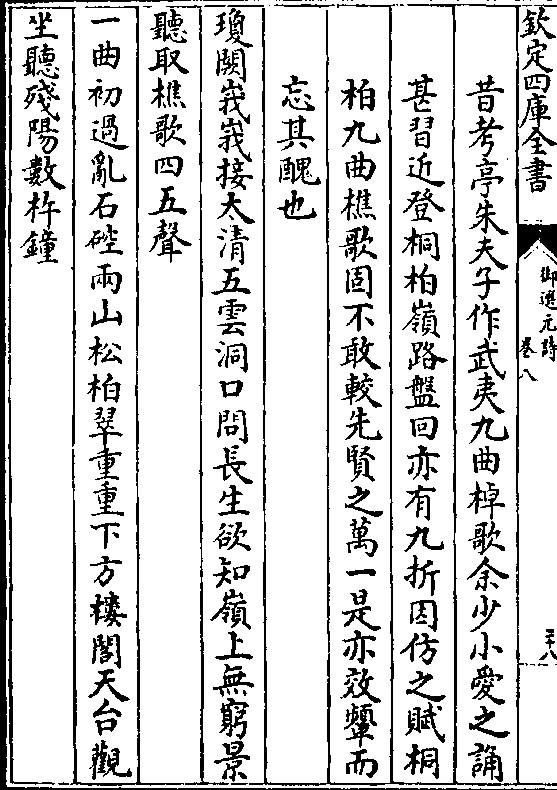 欽定四庫全書
御選元詩
卷八
三十八
昔考亭朱夫子作武夷九曲棹歌余少小愛之誦
甚習近登桐柏嶺路盤回亦有九折因仿之賦桐
柏九曲樵歌固不敢較先賢之萬一是亦效顰而
忘其醜也
瓊闕峩峩接太清五雲洞口問長生欲知嶺上無窮景
聽取樵歌四五聲
一曲初過亂石硿兩山松柏翠重重下方樓閣天台觀
坐聽殘陽數杵鐘